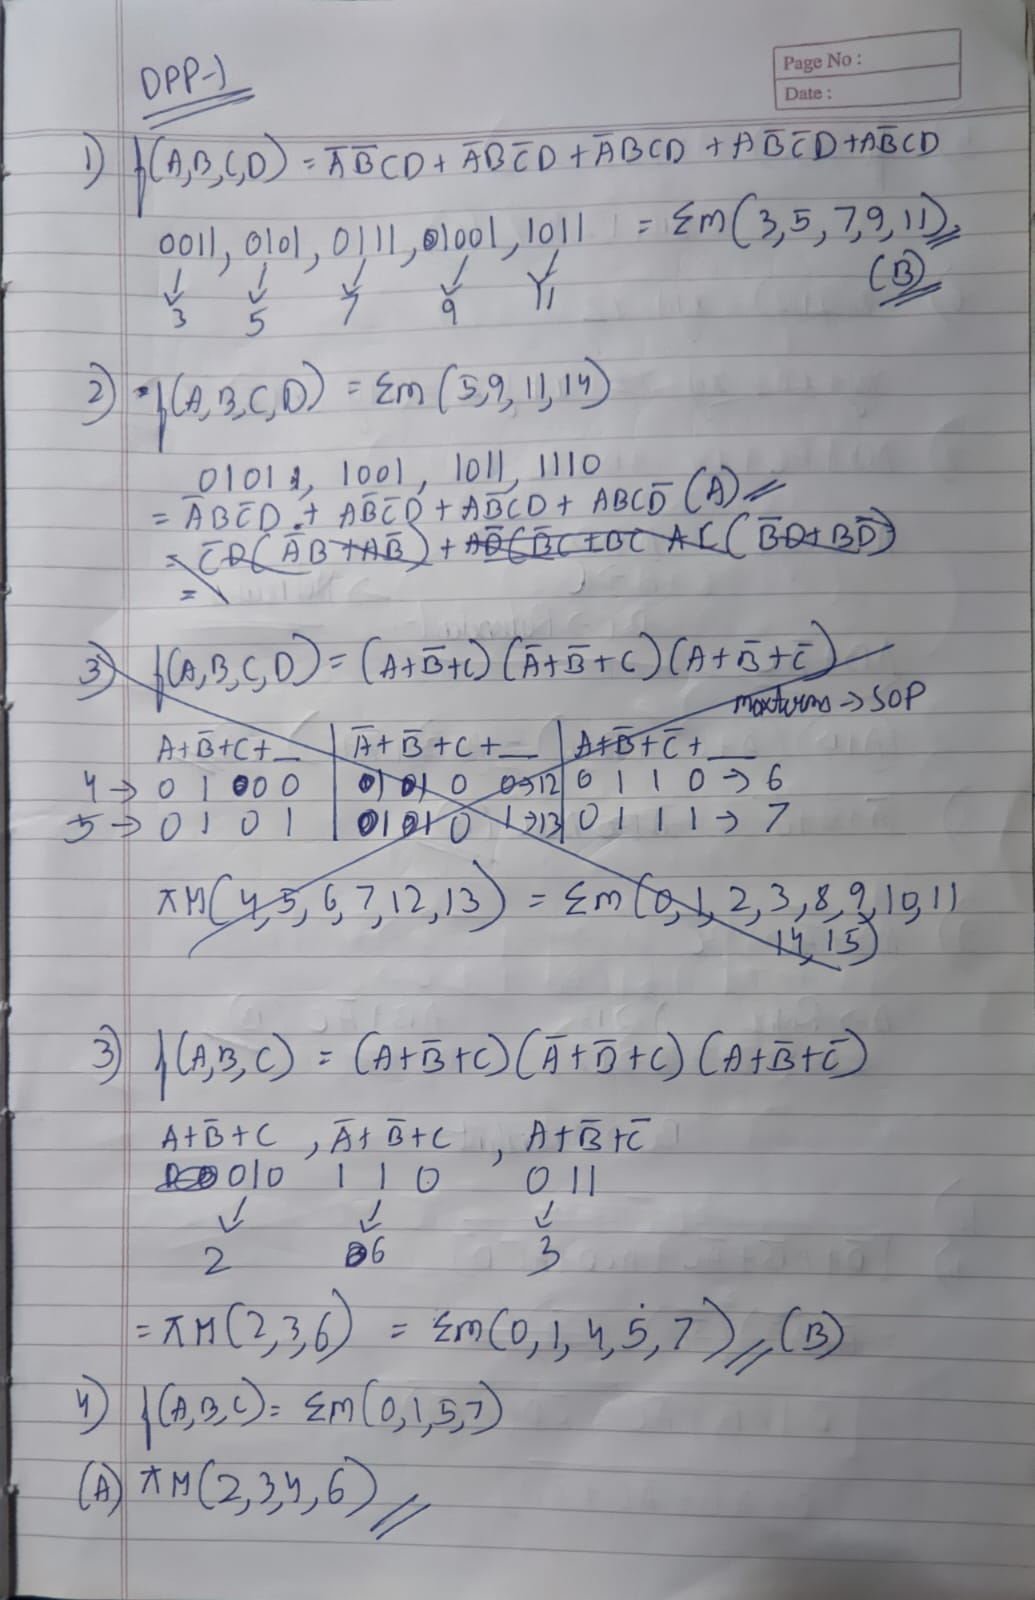 Page No :
Date :
DPP-1
1) f(A,B,C,D) = A̅B̅CD + A̅BC̅D + A̅BCD + AB̅C̅D + AB̅CD
0011, 0101, 0111, 1001, 1011 = Σm(3,5,7,9,11)
3 5 7 9 11 (B)
2) f(A,B,C,D) = Σm(5,9,11,14)
0101, 1001, 1011, 1110
= A̅BC̅D + AB̅C̅D + AB̅CD + ABCD̅ (A)
= C̅D(A̅B+AB̅) + AC(B̅D+BD̅)
=
3) f(A,B,C,D) = (A+B̅+C)(A̅+B̅+C)(A+B̅+C̅)
maxterms → SOP
A+B̅+C+_ | A̅+B̅+C+_ | A+B̅+C̅+_
4 → 0 1 0 0 | 1 1 0 0→12 | 0 1 1 0 → 6
5 → 0 1 0 1 | 1 1 0 1→13 | 0 1 1 1 → 7
πM(4,5,6,7,12,13) = Σm(0,1,2,3,8,9,10,11
14,15)
3) f(A,B,C) = (A+B̅+C)(A̅+B̅+C)(A+B̅+C̅)
A+B̅+C , A̅+B̅+C , A+B̅+C̅
010 1 1 0 0 11
2 6 3
= πM(2,3,6) = Σm(0,1,4,5,7) (B)
4) f(A,B,C) = Σm(0,1,5,7)
(A) πM(2,3,4,6)